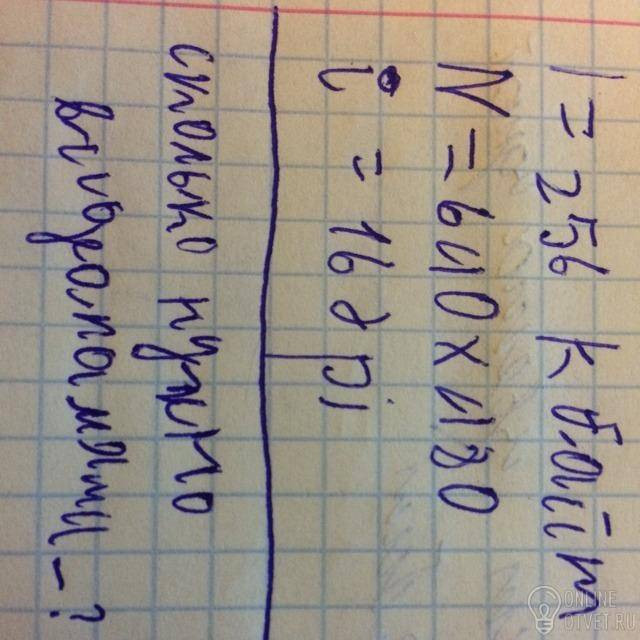 I = 256 Кбайт
N = 640x480
i = 16 dpi
сколько нужно
видеопамяти - ?
ONLINE
OTVET.RU